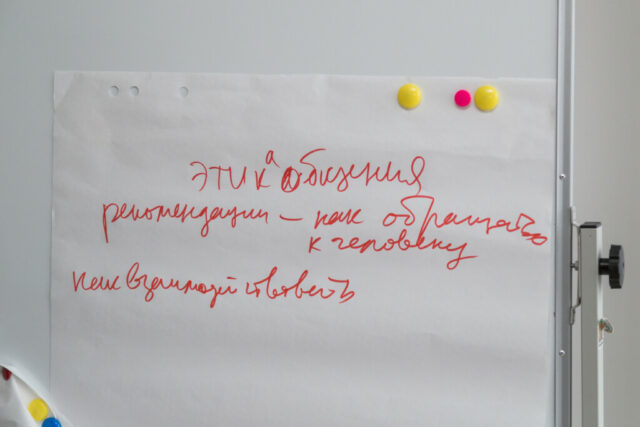 этика общения
рекомендации – как обращаться
к человеку
как взаимодействовать